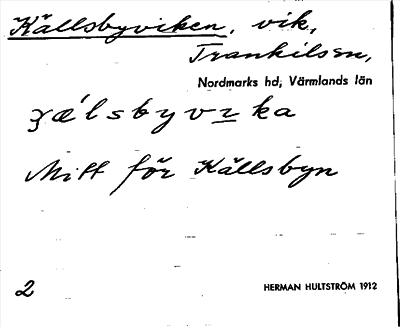 Källsbyviken, vik,
Trankilsm,
Nordmarks hd, Värmlands län
Mitt för Källsbyn
2
HERMAN HULTSTRÖM 1912